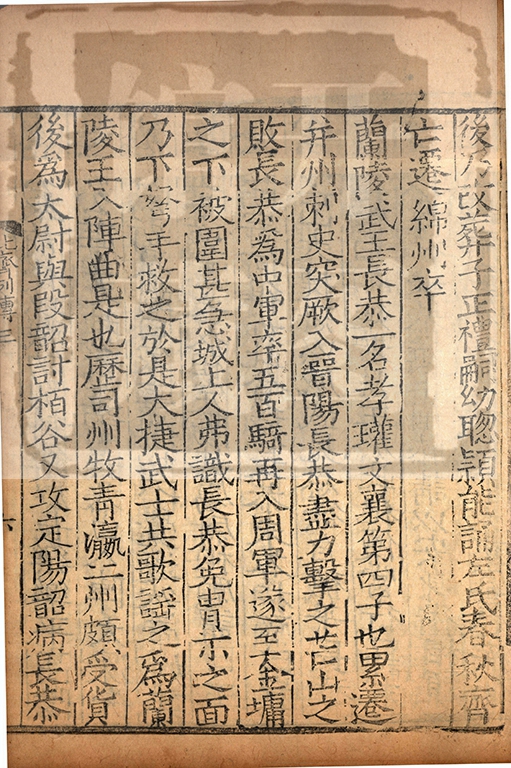 後乃改葬子正禮嗣幼聰頴能誦左氏春秋齊
亡遷綿州卒
蘭陵武王長恭一名孝瓘文襄第四子也累遷
并州刺史突厥入晉陽長恭盡力擊之芒山之
敗長恭爲中軍卒五百騎再入周軍遂至金墉
之下被圍甚急城上人弗識長恭免冑示之面
乃下弩手救之於是大捷武士共歌謡之爲蘭
陵王入陣曲是也歷司州牧青瀛二州頗受貨
後爲太尉與段韶討栢谷又攻定陽韶病長恭
北齊列傳三
六